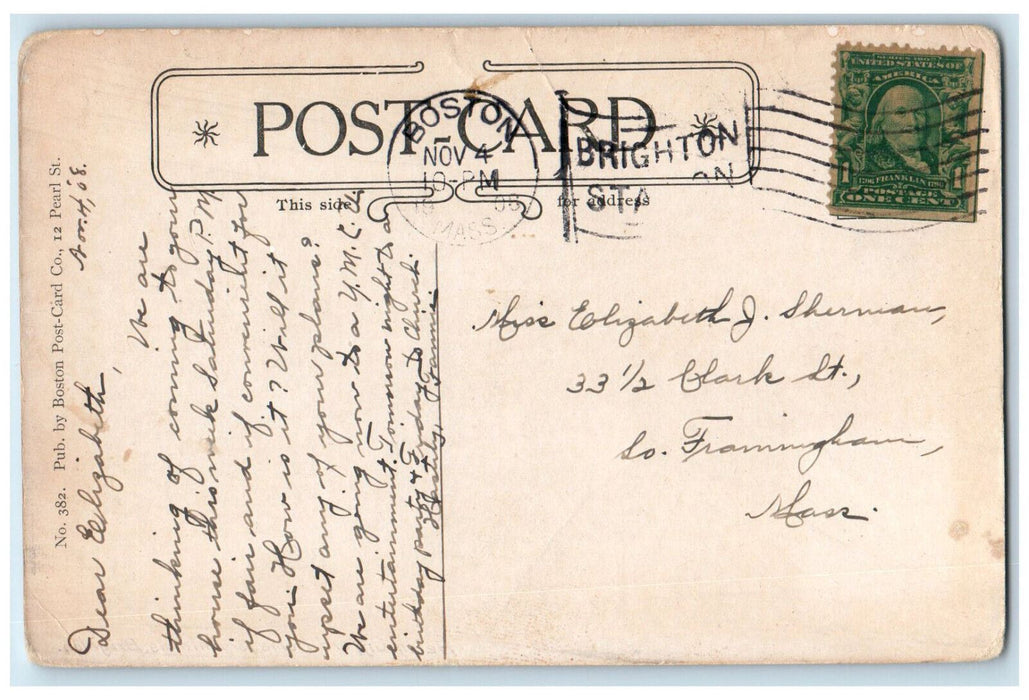 POST-CARD
This side for address
BOSTON
NOV 4
10-PM
MASS
BRIGHTON
STA
SERIES 1902
UNITED STATES OF
AMERICA
1706 FRANKLIN 1790
1 1
POSTAGE
ONE CENT
No. 382. Pub. by Boston Post-Card Co., 12 Pearl St.
Nov. 4, '08.
Dear Elizabeth,
We are
thinking of coming to your
house this week Saturday P.M.
if fair and if convenient for
you. How is it? Will it
upset any of your plans?
We are going now to a Y.M.C.A.
entertainment, Tomorrow night to a
birthday party & Friday to Church.
Hastily, Fannie.
Miss Elizabeth J. Sherman,
33 1/2 Clark St.,
So. Framingham,
Mass.